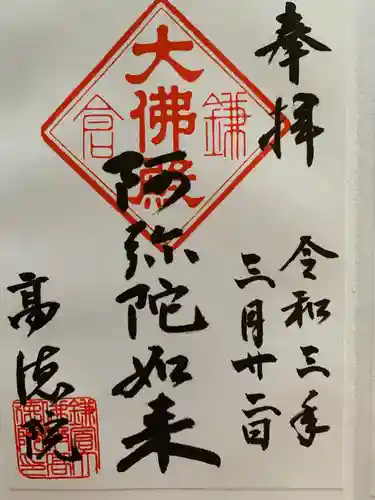 奉拝
令和三年
三月廿二日
鎌倉
大佛殿
阿弥陀如来
高徳院